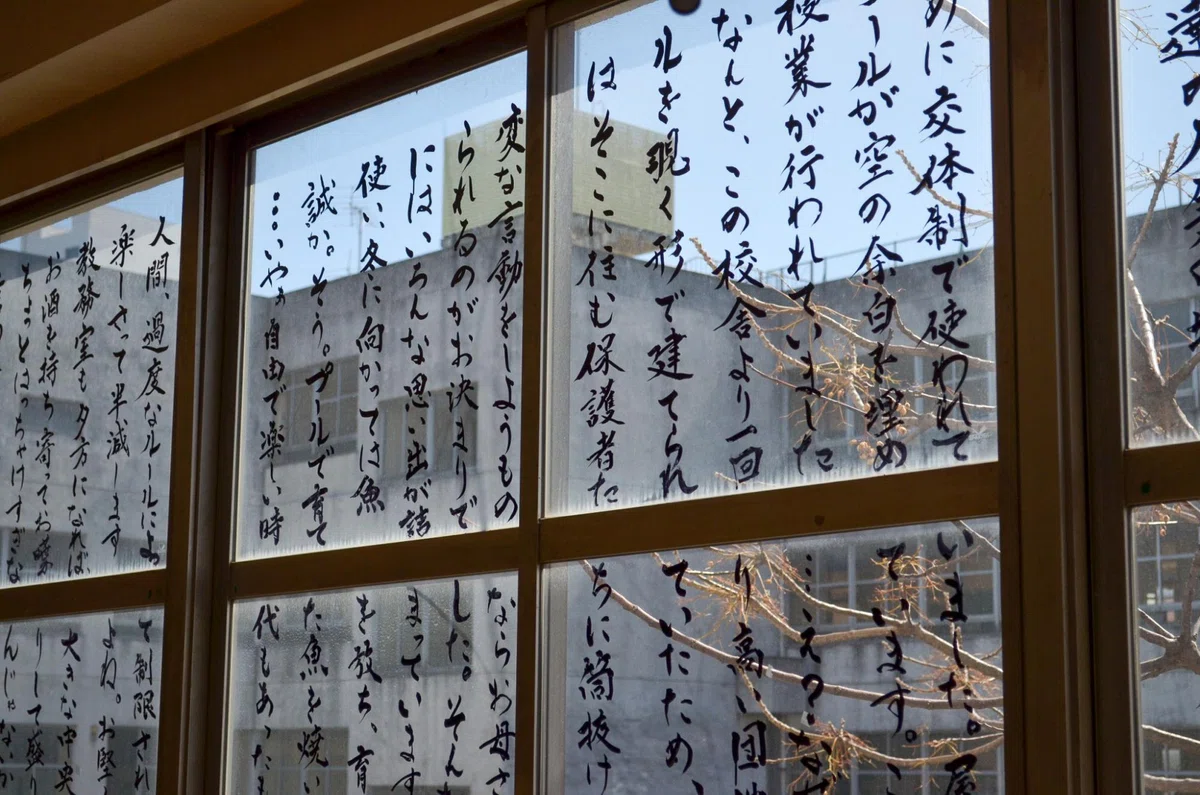 めに交体制で使われていました。屋
ールが空の余白を埋めています。こ
授業が行われていました…えっなぜ
なんと、この校舎より一回り高い団地
ルを覗く形で建てられていたため、
はそこに住む保護者たちに筒抜け
変な言動をしようものならお母さ
られるのがお決まりでした。そん
には、いろんな思い出が詰まっています
使い、冬に向かっては魚を放ち、育
誠か。そう。プールで育てた魚を焼い
…いやぁ自由で楽しい時代もあったま
人間、過度なルールによて制限され
楽しさって半減しますよね。お堅
教務室も夕方になれば大きな中央
お酒を持ち寄ってお祭りして盛り
ちょっとはっちゃけすぎなんじゃなか